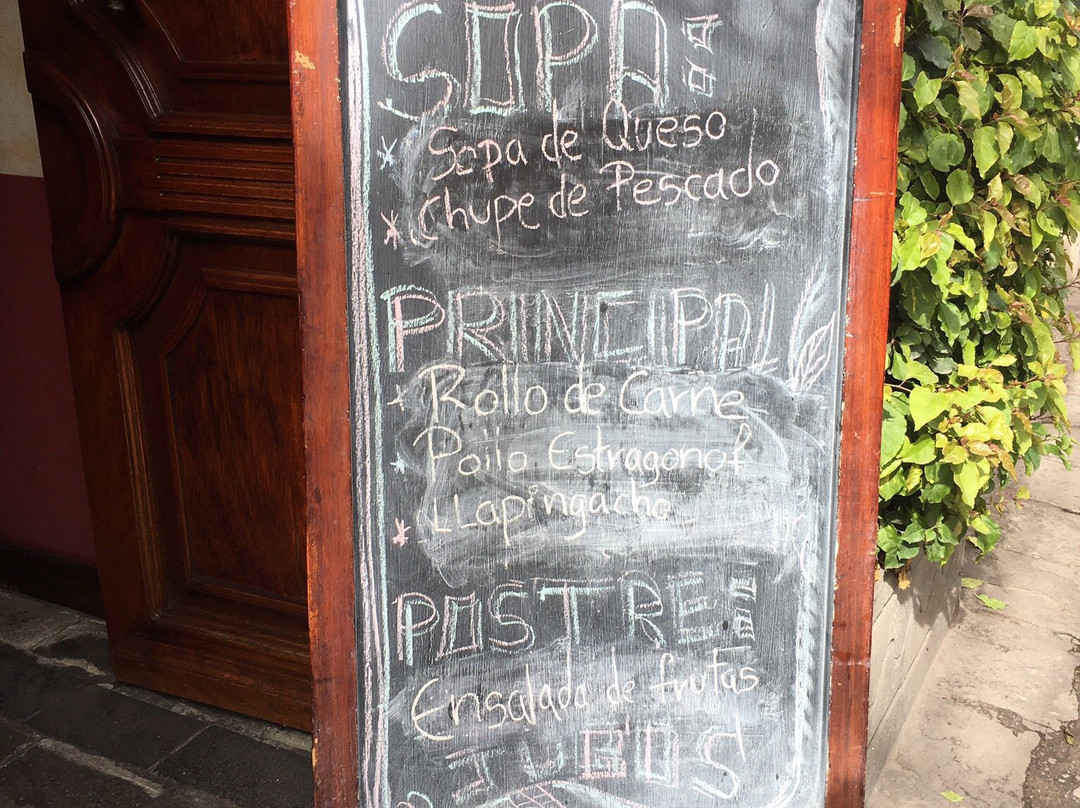 SOPA:
* Sopa de Queso
* Chupe de Pescado
PRINCIPAL
* Rollo de Carne
* Pollo Estragonof
* LLapingacho
POSTRE:
Ensalada de frutas
JUGOS